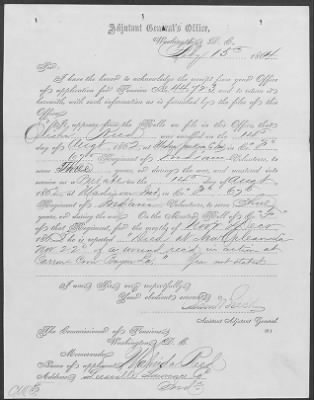 Adjutant General's Office,
Washington, D. C.
15th, 1864
Sir:
I have the honor to acknowledge the receipt from your Office
of application for Pension No. 44,723, and to return it
herewith, with such information as is furnished by the files of this
Office.
It appears from the Rolls on file in this Office, that
was enrolled on the 14th
day of Augt, 1862, at in Co. "F"
67th Regiment of Indiana Volunteers, to
serve Three years, or during the war, and mustered into
service as a Private on the day of August
1862, at Madison Ind, in Co. "F" 67th
Regiment of Indiana Volunteers, to serve Three
years, or during the war. On the Muster Roll of Co. "F"
of that Regiment, for the months of Nov & Dec
1863 he is reported "Died at New Orleans La
Nov 22" of a wound recd in action at
La." Year not stated
I am, Sir, very respectfully,
Your obedient servant,
Assistant Adjutant General.
The Commissioner of Pensions,
Washington, D. C.
Memoranda:
Name of applicant,
Address, Lawrence Co
Inda